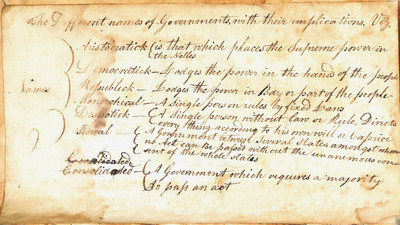 The Different names of Governments, with their implications. Viz.
Aristocratick (is that which places the Supreme power in
the Nobles
Names
Democratick — Lodges the power in the hands of the people
Republick — Lodges the power in Body or part of the people
Monarchical — A Single person rules by fixed Laws
Despotick — A Single person without law or Rule Directs
every thing according to his own will or Caprice
Federal — A Government between Several States amongst whom
no Act can be passed without the unanimous con
sent of the whole States
Consolidated
Consolidated — A Government which requires a majority
to pass an act